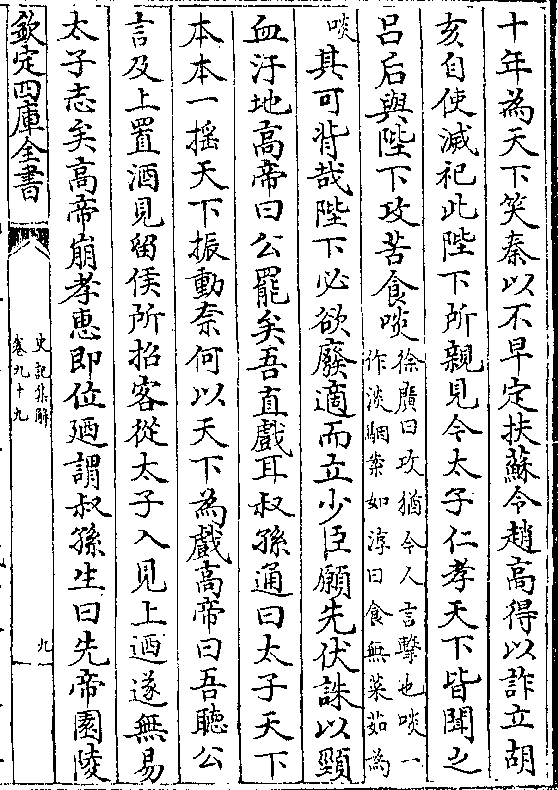 十年為天下笑秦以不早定扶蘇令趙高得以詐立胡
亥自使滅祀此陛下所親見今太子仁孝天下皆聞之
呂后與陛下攻苦食啖徐廣曰攻猶今人言擊也啖一作淡駰案如淳曰食無菜茹為
啖其可背哉陛下必欲廢適而立少臣願先伏誅以頸
血汙地高帝曰公罷矣吾直戲耳叔孫通曰太子天下
本本一搖天下振動奈何以天下為戲高帝曰吾聽公
言及上置酒見留侯所招客從太子入見上迺遂無易
太子志矣高帝崩孝惠即位迺謂叔孫生曰先帝園陵
欽定四庫全書
史記集解
卷九十九
九